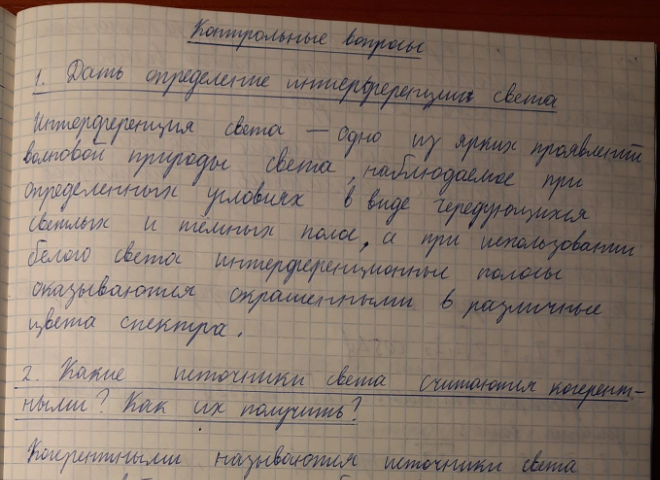 Контрольные вопросы
1. Дать определение интерференции света
Интерференция света – одно из ярких проявлений
волновой природы света, наблюдаемое при
определенных условиях в виде чередующихся
светлых и тёмных полос, а при использовании
белого света интерференционные полосы
оказываются окрашенными в различные
цвета спектра.
2. Какие источники света считаются когерент-
ными? Как их получить?
Когерентными называются источники света